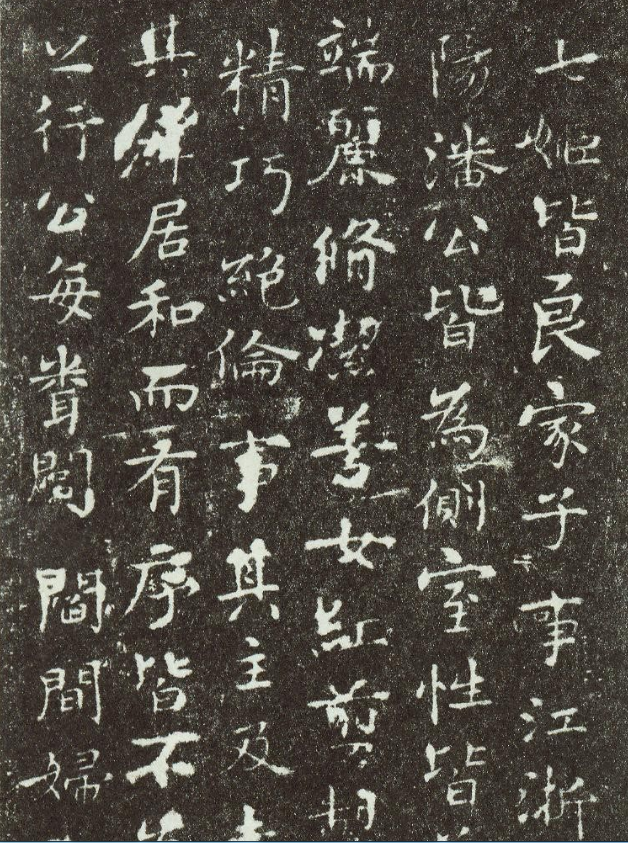 七姬皆良家子事江浙
陽潘公皆為側室性皆
端麗脩潔善女紅剪
精巧絕倫事其主及
其群居和而有序皆不
之行公每閭閻間婦